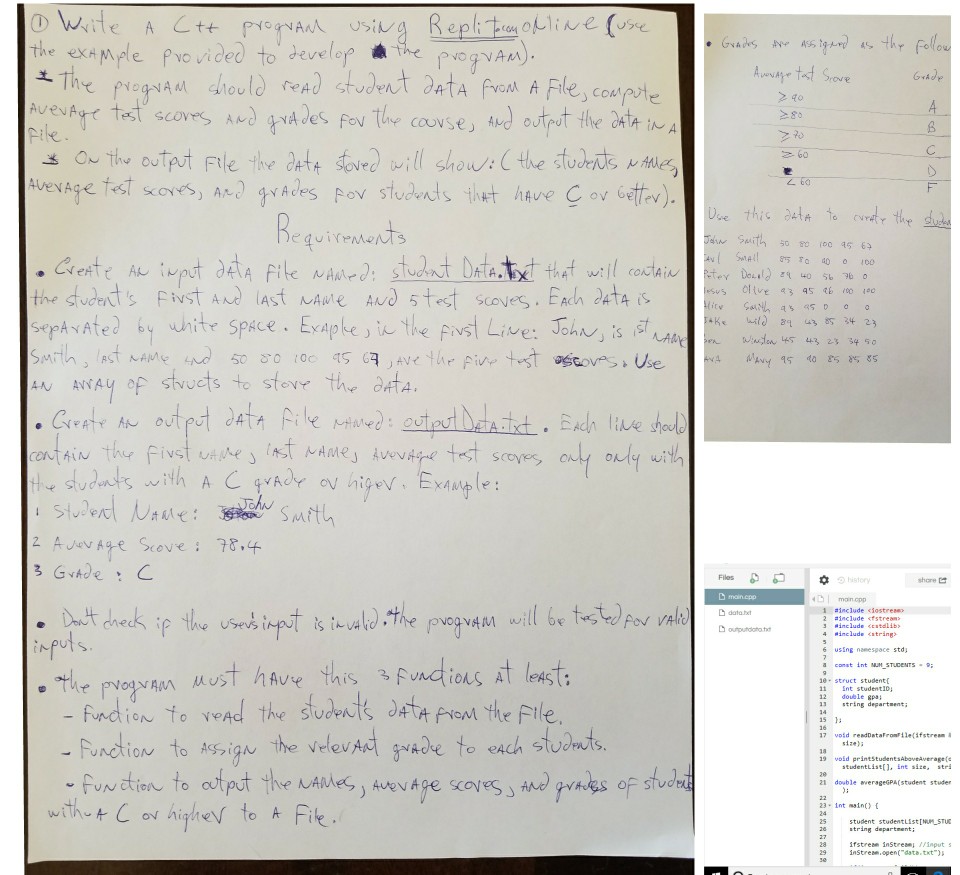 ① Write A C++ program using Repli t.com online (use
the example provided to develop the program).
* The program should read student data from A File, compute
Average test scores and grades for the course, and output the data in A
File.
* On the output File the data stored will show: (the students names,
Average test scores, and grades for students that have C or better).
Requirements
• Create An input data File named: student Data.txt that will contain
the student's First and last name and 5 test scores. Each data is
separated by white space. Example, in the First Line: John, is 1st name
Smith, last name and 50 80 100 95 67, are the five test scores. Use
An Array of structs to store the data.
• Create An output data File named: output Data.txt. Each line should
contain the First name, last name, average test scores, only only with
the students with A C grade or higer. Example:
1 Student Name: John Smith
2 Average Score: 78.4
3 Grade: C
• Don't check if the user's input is invalid. The program will be tested for valid
inputs.
• the program must have this 3 Functions At least:
- Function to read the student's data from the File.
- Function to Assign the relevant grade to each students.
- Function to output the names, average scores, and grades of student
with A C or higher to A File.
• Grades are assigned as the follow
Average test Score Grade
≥ 90 A
≥ 80 B
≥ 70 C
≥ 60 D
< 60 F
Use this data to create the
John Smith 50 80 100 95 67
Small 85 80 90 0 100
Donald 89 40 56 76 0
Olive 93 95 96 100 100
Smith 93 95 0 0 0
Wild 89 43 85 34 23
Winston 45 43 23 34 50
Mary 95 90 85 85 85
Files history share
main.cpp
data.txt
outputdata.txt
main.cpp
1 #include <iostream>
2 #include <fstream>
3 #include <cstdlib>
4 #include <string>
5
6 using namespace std;
7
8 const int NUM_STUDENTS = 9;
9
10 struct student{
11 int studentID;
12 double gpa;
13 string department;
14
15 };
16
17 void readDataFromFile(ifstream
size);
18
19 void printStudentsAboveAverage(
studentList[], int size, stri
20
21 double averageGPA(student studen
);
22
23 int main() {
24
25 student studentList[NUM_STUD
26 string department;
27
28 ifstream inStream; //input s
29 inStream.open("data.txt");
30